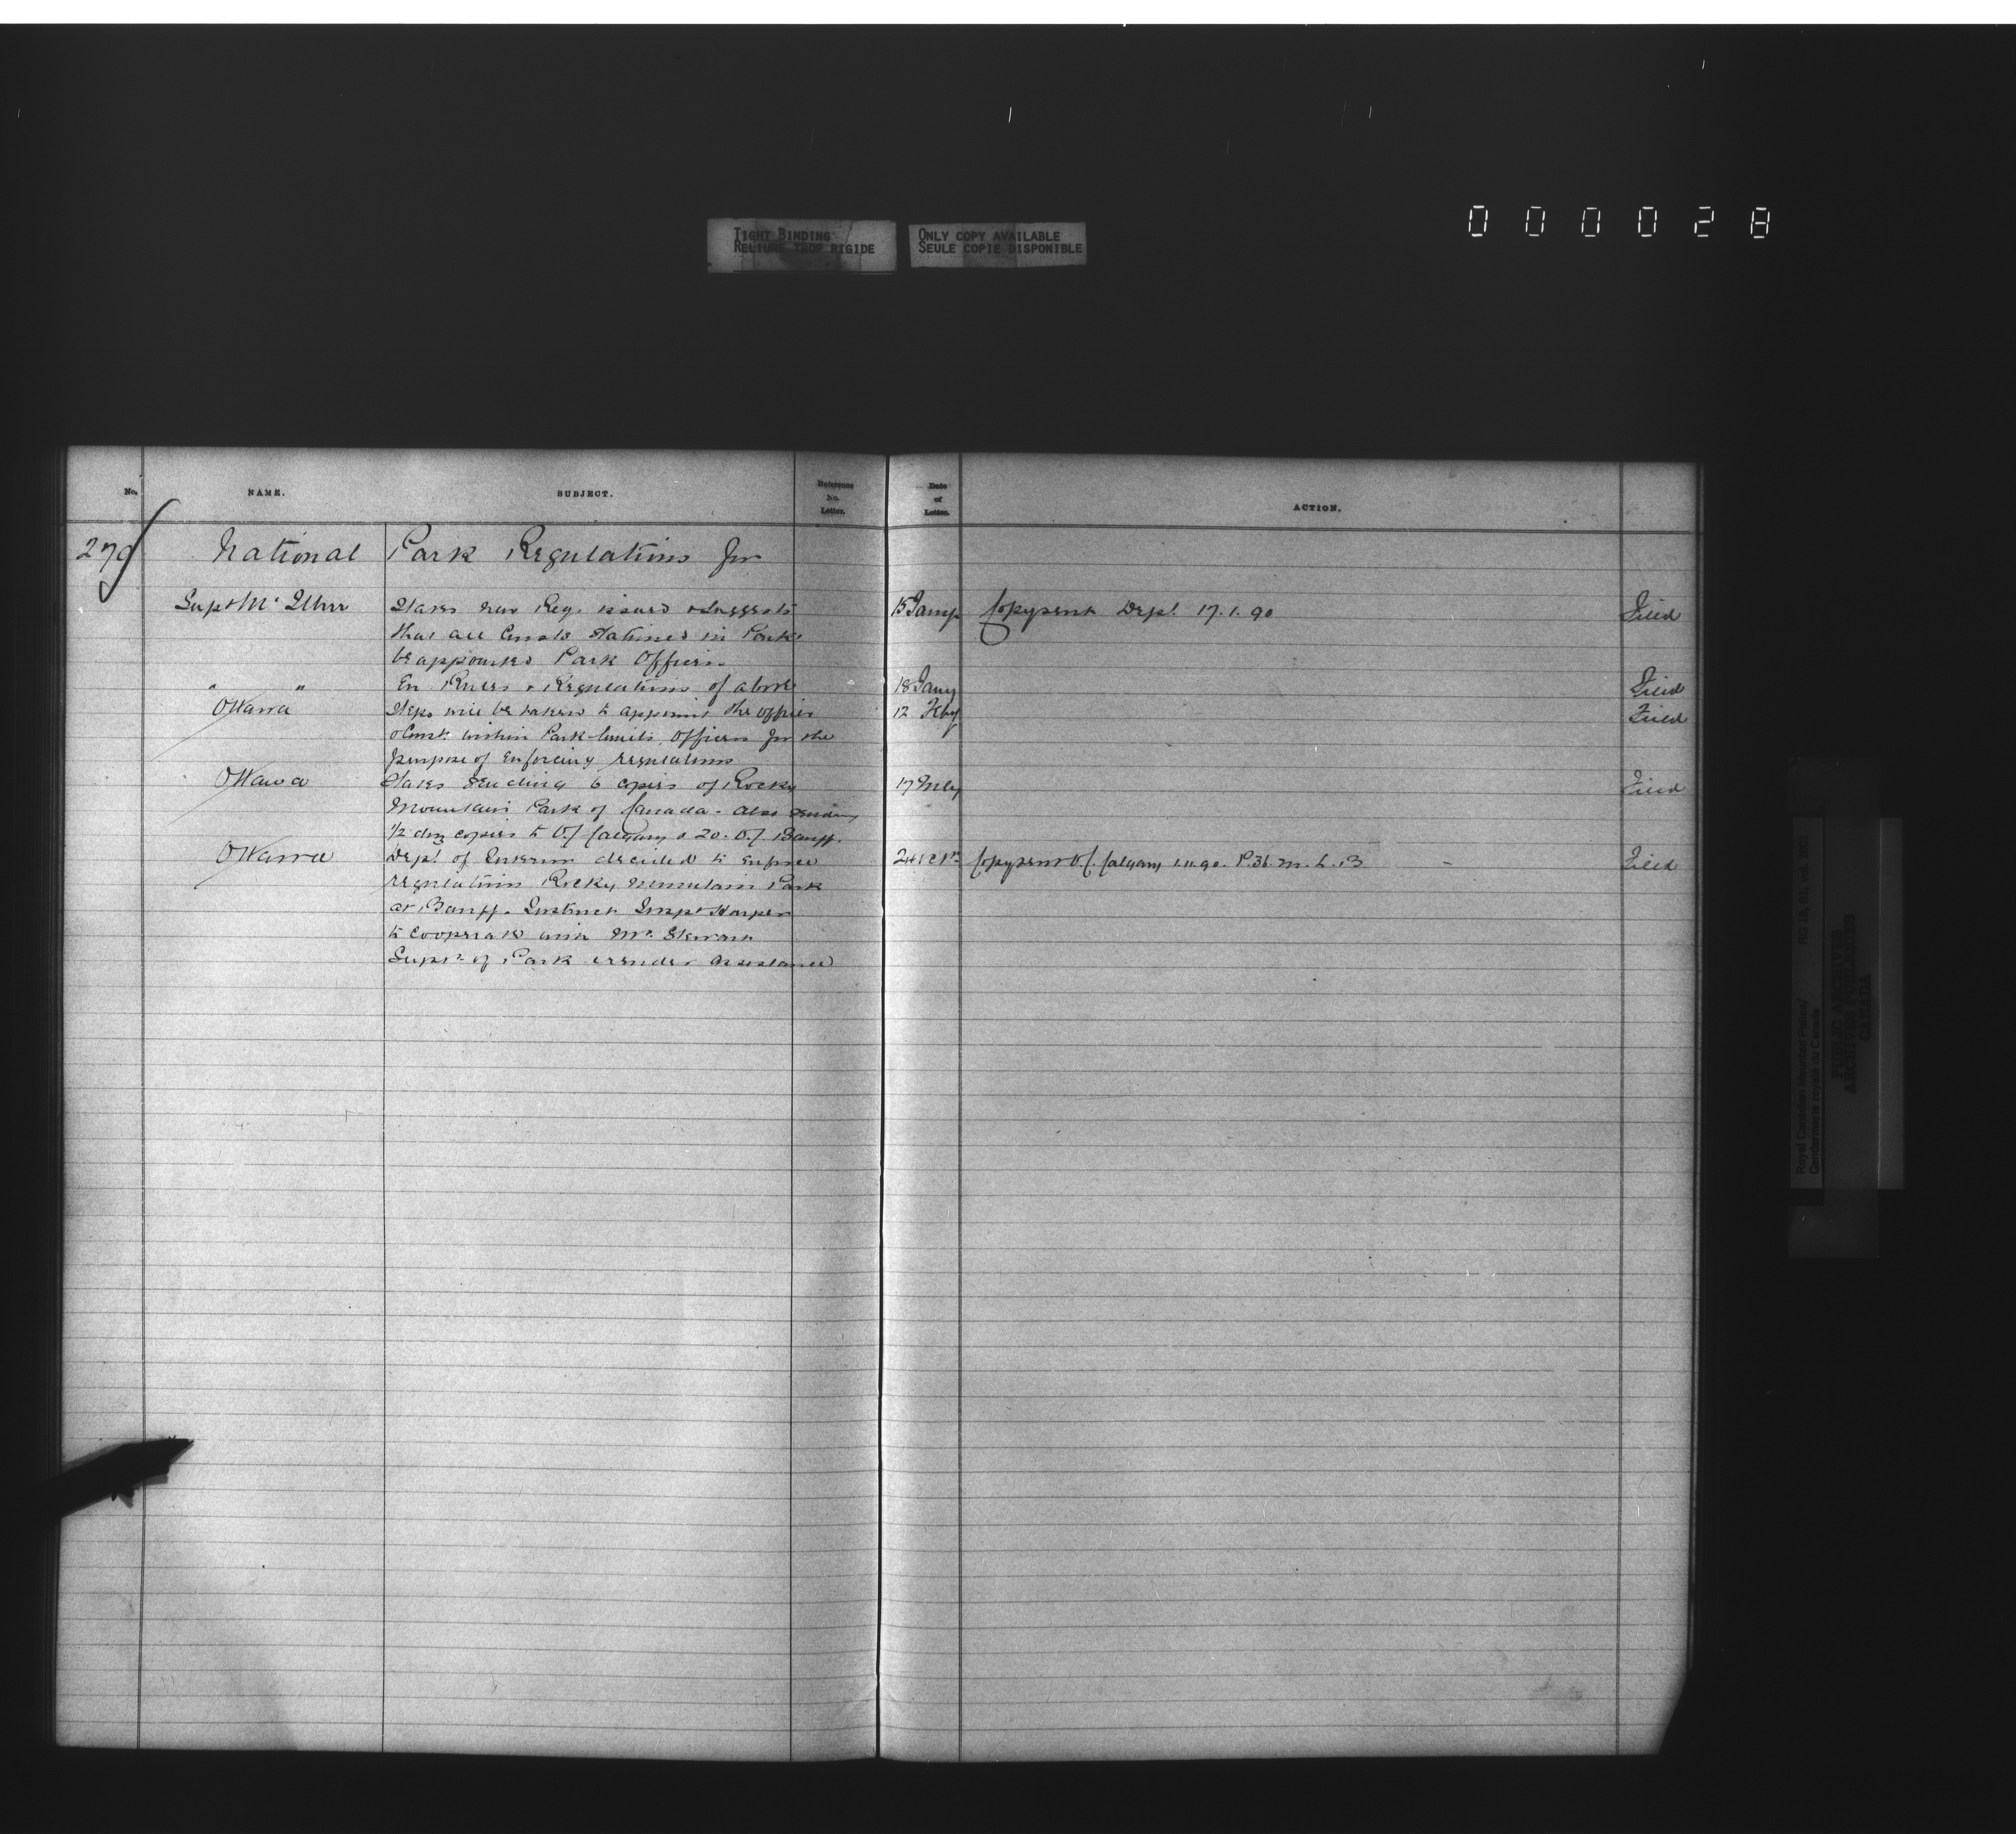 000028
TIGHT BINDING
RELIURE TROP RIGIDE
ONLY COPY AVAILABLE
SEULE COPIE DISPONIBLE
No. NAME. SUBJECT. Reference No. Letter. Date of Letter. ACTION.
279 National Park Regulations for
Supt Mc Illree States new Regs issued & Suggests 15 Jany Copy sent Dept. 17.1.90 Filed
that all Consts Stationed in Park
be appointed Park Officers
" " En Rules & Regulations of above 18 Jany Filed
Ottawa Steps will be taken to appoint the officer 12 Feby Filed
& Const. within Park limits, Officers for the
purpose of Enforcing regulations
Ottawa States sending 6 copies of Rocky 17 Filed
Mountain Park of Canada - also sending
1/2 doz copies to O/ Calgary & 20. O/ Banff.
Ottawa Dept. of Interior decided to enforce Copy sent O/C. Calgary 1.11.90. P.36. M. L. B Filed
regulations Rocky Mountain Park
at Banff. Instruct Inspr Harper
to cooperate with Mr. Stewart
Supt. of Park & render assistance
Royal Canadian Mounted Police/
Gendarmerie royale du Canada
PUBLIC ARCHIVES
ARCHIVES PUBLIQUES
CANADA